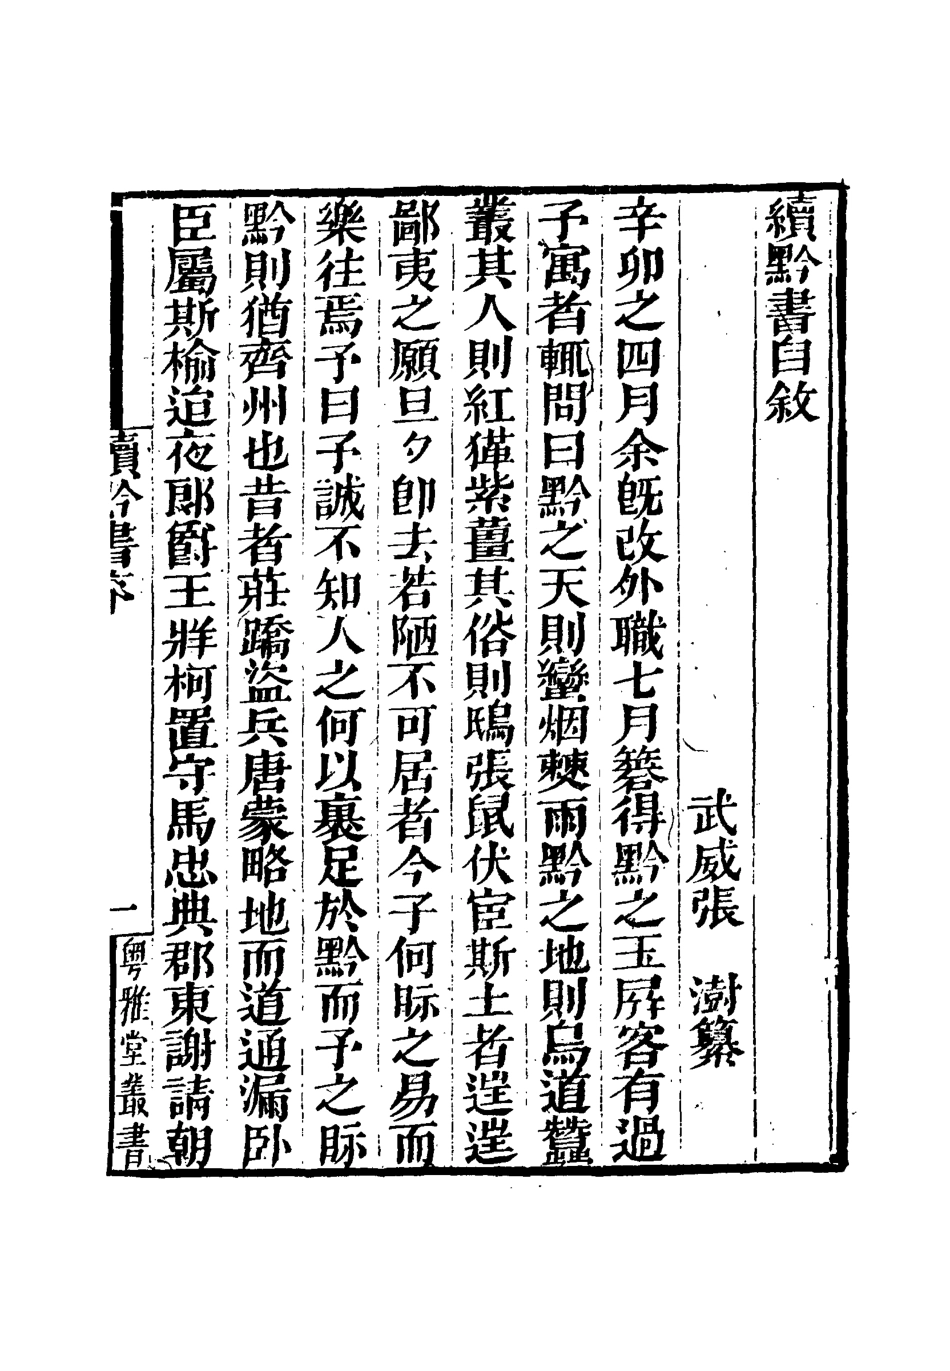 續黔書自敘
武威張　澍纂
辛卯之四月余旣改外職七月簭得黔之玉屏客有過
予寓者輒問曰黔之天則蠻烟𣗥雨黔之地則鳥道蠶
叢其人則紅㺔紫薑其俗則鴟張鼠伏宦斯土者逆逆
鄙夷之願旦夕卽去若陋不可居者今子何眎之易而
樂往焉予曰子誠不知人之何以裹足於黔而予之眎
黔則猶齊州也昔者莊蹻盜兵唐蒙略地而道通漏卧
臣屬斯榆迨夜郎爵王牂柯置守馬忠典郡東謝請朝
續黔書序
一
粵雅堂叢書